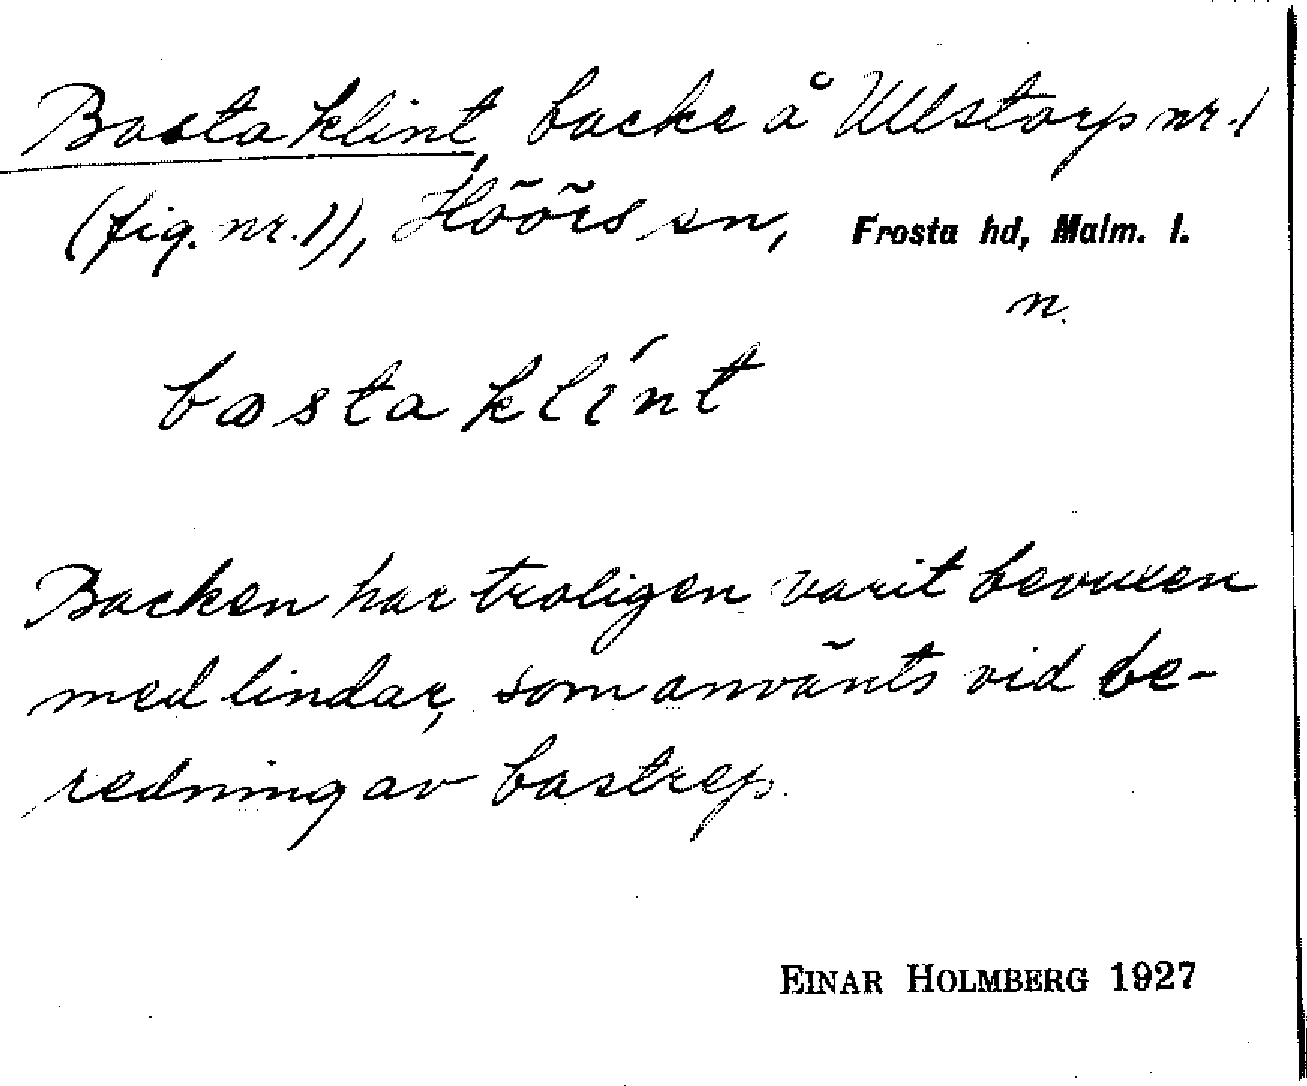 Basta klint, backe å Ullstorp nr. 1
(fig. nr. 1), Höörs sn, Frosta hd, Malm. l.
n.
basta klint
Backen har troligen varit bevuxen
med lindar, som använts vid be-
redning av bastrep.
EINAR HOLMBERG 1927